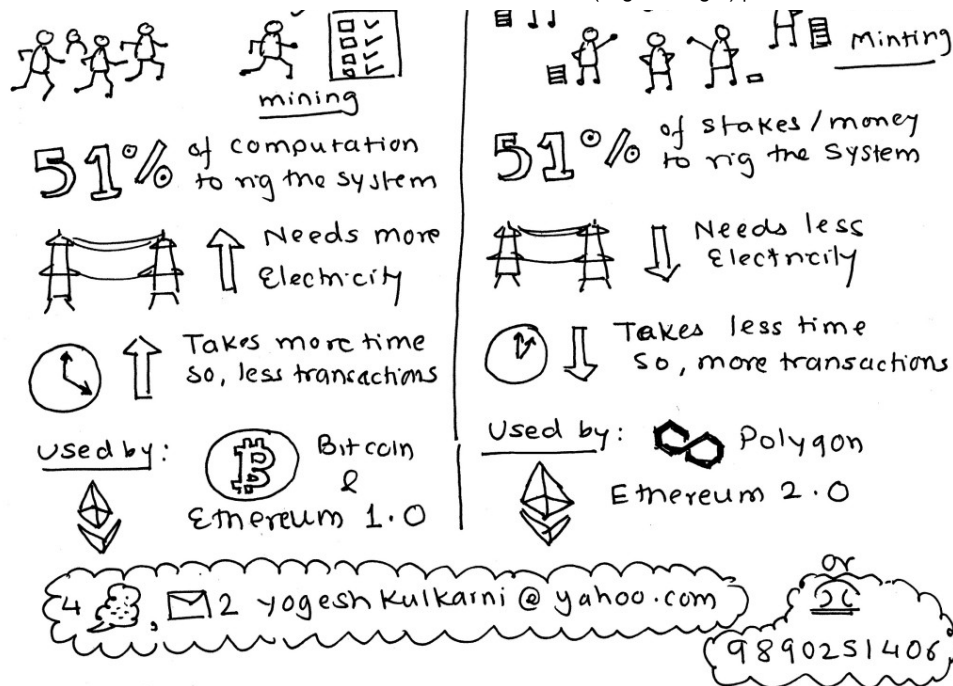 mining
51% of computation
to rig the system
Needs more
Electricity
Takes more time
So, less transactions
Used by:
Bitcoin
&
Ethereum 1.0
Minting
51% of stakes/money
to rig the System
Needs less
Electricity
Takes less time
So, more transactions
Used by:
Polygon
Ethereum 2.0
4 , 2 yogeshkulkarni@yahoo.com
or
9890251406